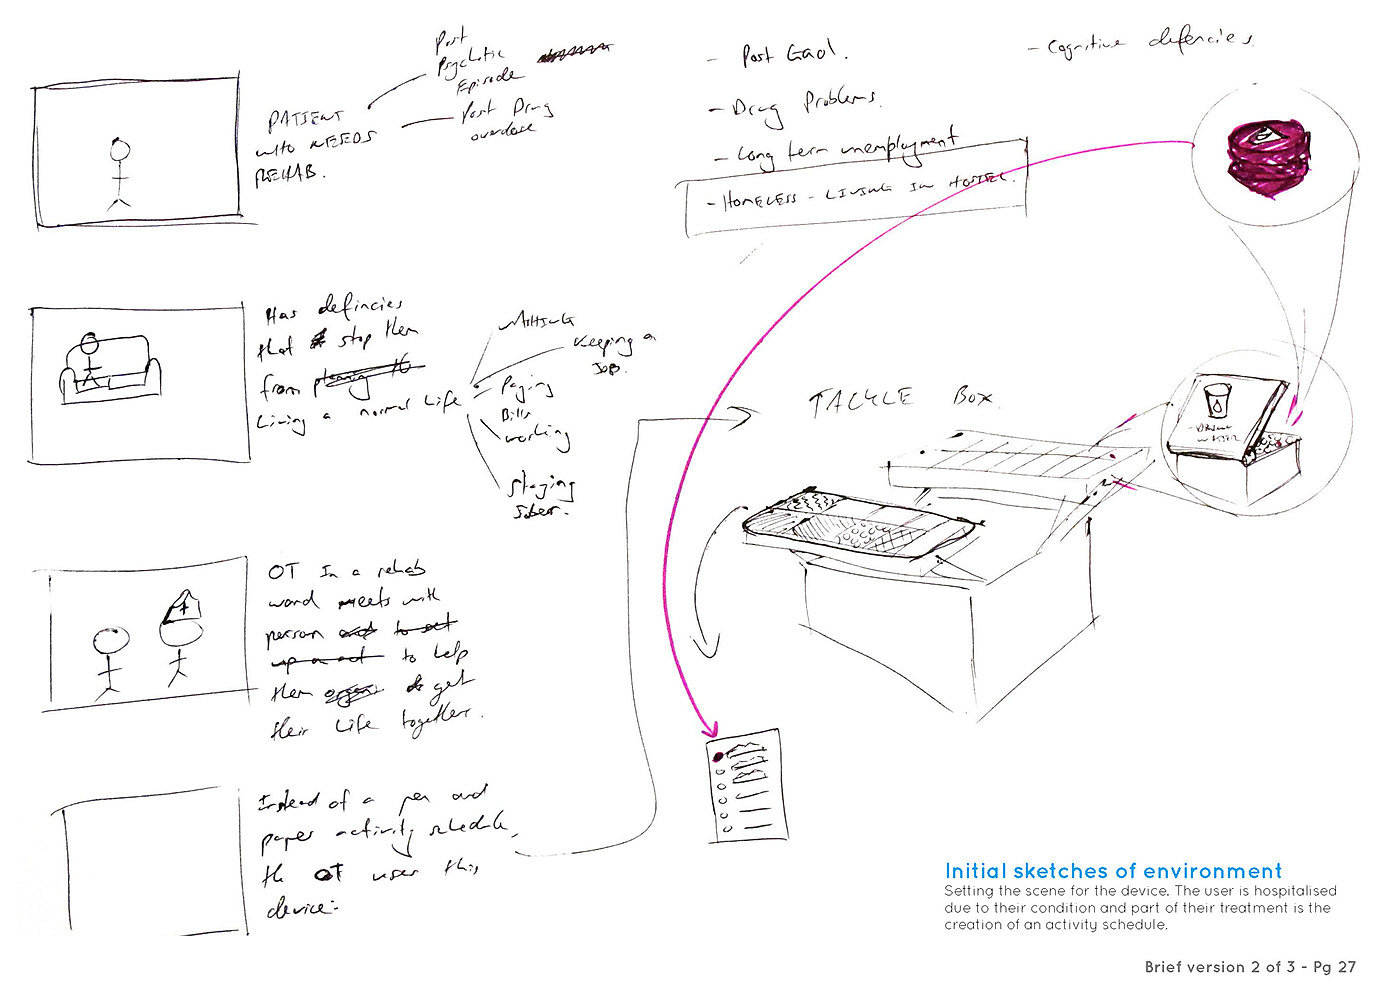 PATIENT
WHO NEEDS
REHAB.
Post
Psychotic
Episode
Post Drug
overdose
- Post Gaol.
- Drug Problems.
- Long term unemployment
- HOMELESS - LIVING IN HOSTEL.
- Cognitive defencies
Has defincies
that stop them
from
Living a normal Life
Keeping a
Job.
Paying
Bills
working
Staying
Sober.
OT In a rehab
ward meets with
person
to help
them get
their Life together.
Instead of a pen and
paper activity schedule,
the OT uses this
device:-
TACKLE BOX.
DRINK
WATER
Initial sketches of environment
Setting the scene for the device. The user is hospitalised
due to their condition and part of their treatment is the
creation of an activity schedule.
Brief version 2 of 3 - Pg 27